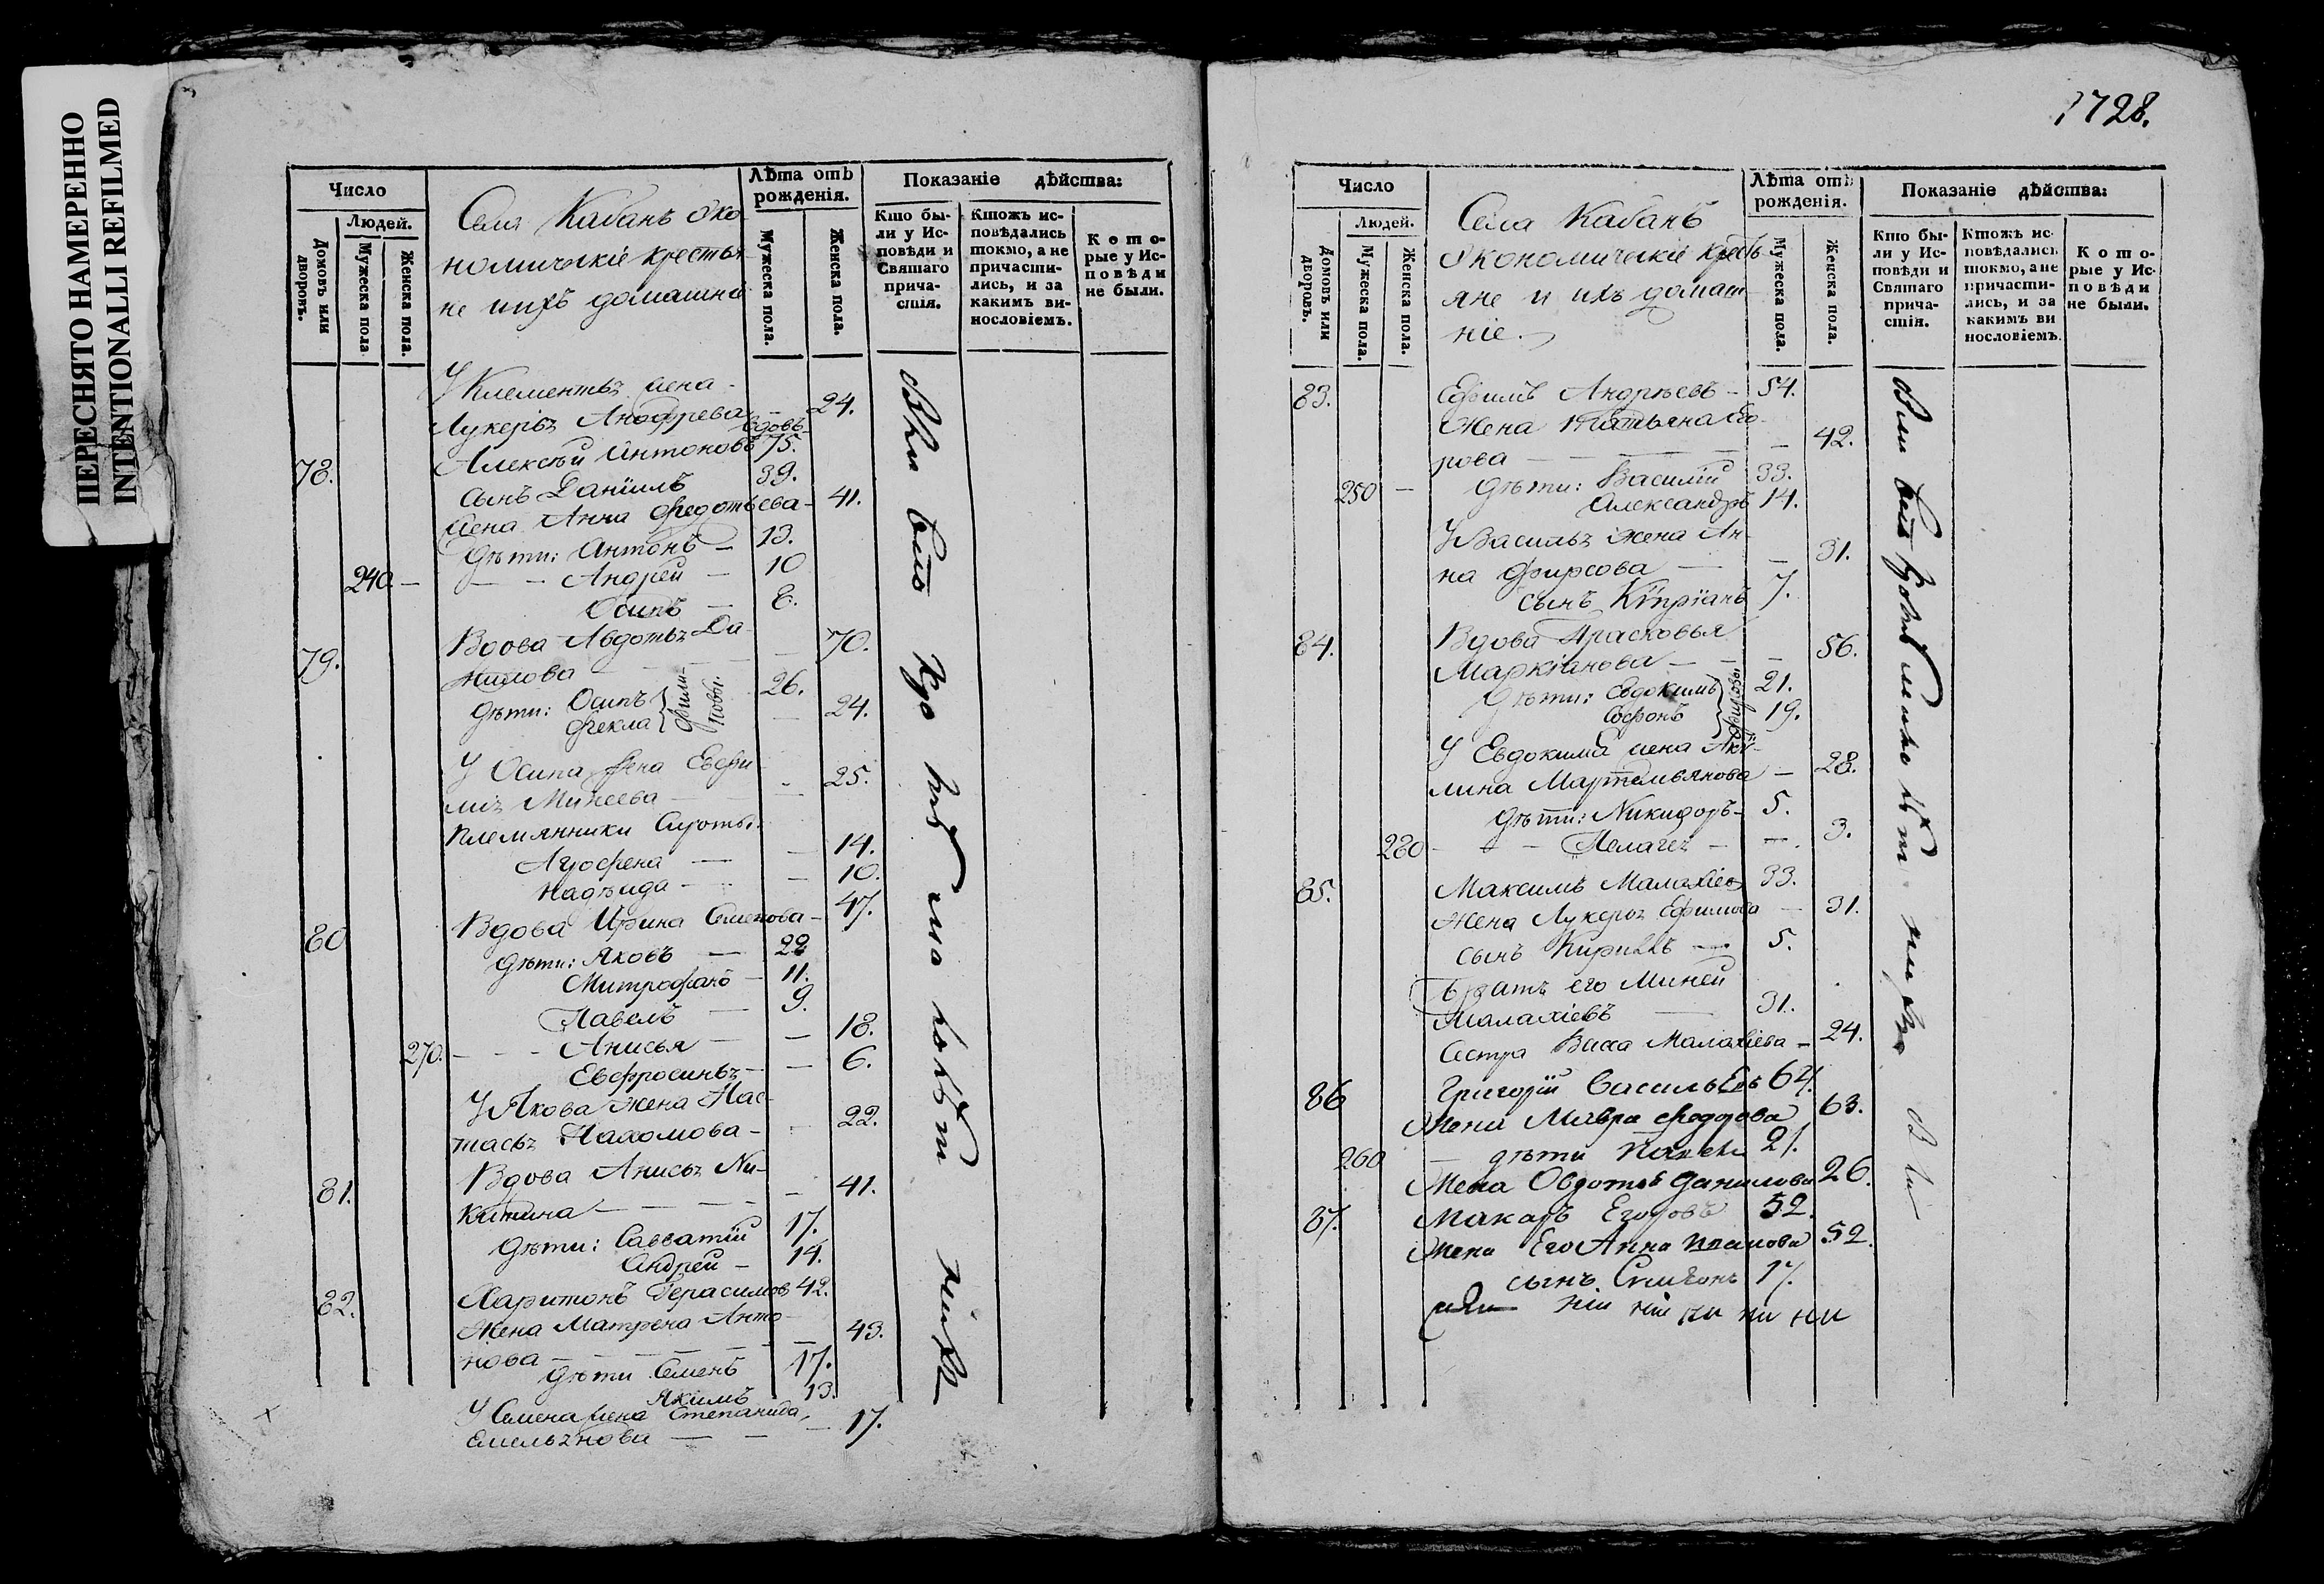 ПЕРЕСНЯТО НАМЕРЕННО
INTENTIONALLI REFILMED
Число
Людей.
Домовъ или дворовъ.
Мужеска пола.
Женска пола.
Села Кабанъ эко
номическіе крестья
не ихъ домашні
Лѣта отъ рожденія.
Мужеска пола.
Женска пола.
Показаніе дѣйства:
Кто бы-
ли у Ис-
повѣди и
Святаго
прича-
стія.
Ктожъ ис-
повѣдались
токмо, а не
причасти-
лись, и за
какимъ ви-
нословіемъ.
Кото-
рые у Ис-
повѣди
не были.
У Клементья жена
Лукерья Анофрева - 24.
вдовъ
78. Алексѣй Антоновъ 75.
сынъ Даніилъ 39.
жена Анна Федотьева - 41.
дѣти: Антонъ - 13.
240 - - - Андрей - 10
Осипъ - 8.
79. Вдова Авдотья Да-
нилова - 70.
дѣти: Осипъ 26.
Фекла - 24.
Фили-
повы.
У Осипа жена Евфи
мія Михеева - 25.
племянники сироты
Агрофена - 14.
Надѣжда - 10.
80 Вдова Ирина Семенова - 47.
дѣти: Яковъ - 22
Митрофанъ - 11.
Павелъ - 9.
270. - - - Анисья - 18.
Евфросинья - 6.
У Якова жена Нас-
тасья Пахомова - 22.
81. Вдова Анисья Ни-
китина - 41.
дѣти: Савватій 17.
Андрей - 14.
82. Харитонъ Герасимов 42.
Жена Матрена Анто-
нова - 43.
дѣти Семенъ 17.
Якимъ 13.
У Семена жена Степанида
Емельянова - 17.
1728.
Число
Людей.
Домовъ или дворовъ.
Мужеска пола.
Женска пола.
Села Кабанъ
Экономическіе кресть
яне и ихъ домаш
ніе.
Лѣта отъ рожденія.
Мужеска пола.
Женска пола.
Показаніе дѣйства:
Кто бы-
ли у Ис-
повѣди и
Святаго
прича-
стія.
Ктожъ ис-
повѣдались
токмо, а не
причасти-
лись, и за
какимъ ви
нословіемъ.
Кото-
рые у Ис-
повѣди
не были.
83. Ефимъ Андрѣевъ - 54.
Жена Татьяна
рова - 42.
250 - дѣти: Василій 33.
Александръ 14.
У Василья жена Ан-
на Фирсова - 31.
сынъ Кѵпріанъ 7.
84. Вдова Прасковья
Маркіанова - 56.
дѣти: Евдокимъ 21.
Софонъ 19.
У Евдокима жена Аку-
лина Мартемьянова - 28.
дѣти: Никифоръ - 5.
280 - - - Пелагея - 3.
85. Максимъ Малахіев 33.
Жена Лукерья Ефимова - 31.
сынъ Кирилъ - 5.
Братъ его Миней
Малахіевъ - 31.
Сестра Васса Малахіева - 24.
86 Григорій Васильевъ 64.
Жена Мавра Федорова 63.
260 - дѣти Павелъ 21.
Жена Овдотья Данилова 26.
87. Макаръ Егоровъ 52.
Жена Его Анна 52.
сынъ 17.
ни ни ни ни ни